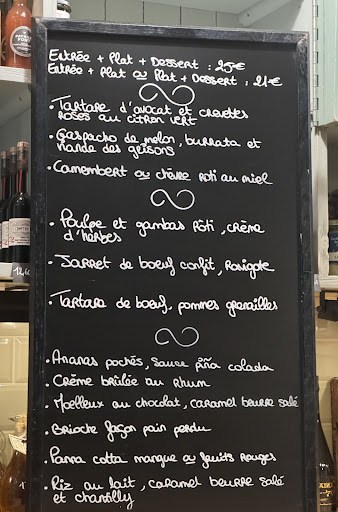 Entrée + Plat + Dessert : 25€
Entrée + Plat ou Plat + Dessert : 21€
• Tartare d'avocat et crevettes
roses au citron vert
• Gaspacho de melon, burrata et
viande des grisons
• Camembert ou chèvre roti au miel
• Poulpe et gambas rôti, crème
d'herbes
• Jarret de boeuf confit, Ravigote
• Tartare de boeuf, pommes grenailles
• Ananas pochés, sauce piña colada
• Crème brûlée au Rhum
• Moelleux au chocolat, caramel beurre salé
• Brioche façon pain perdu
• Panna cotta mangue ou fruits rouges
• Riz au lait, caramel beurre salé
et chantilly